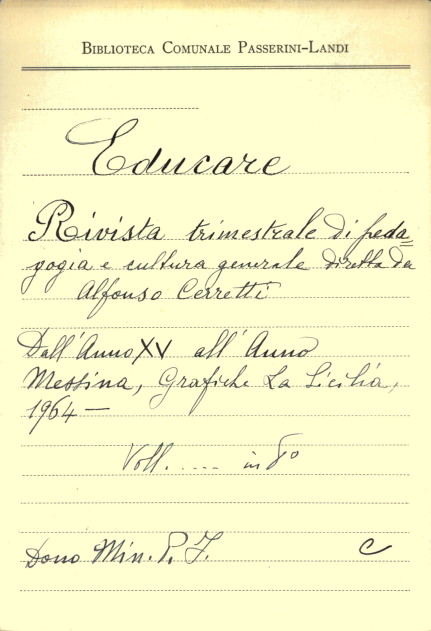 BIBLIOTECA COMUNALE PASSERINI-LANDI
Educare
Rivista trimestrale di peda=
gogia e cultura generale diretta da
Alfonso Cerretti
Dall'Anno XV all'Anno
Messina, Grafiche La Sicilia,
1964 —
Voll. ..... in 8°
Dono Min. P. I. C